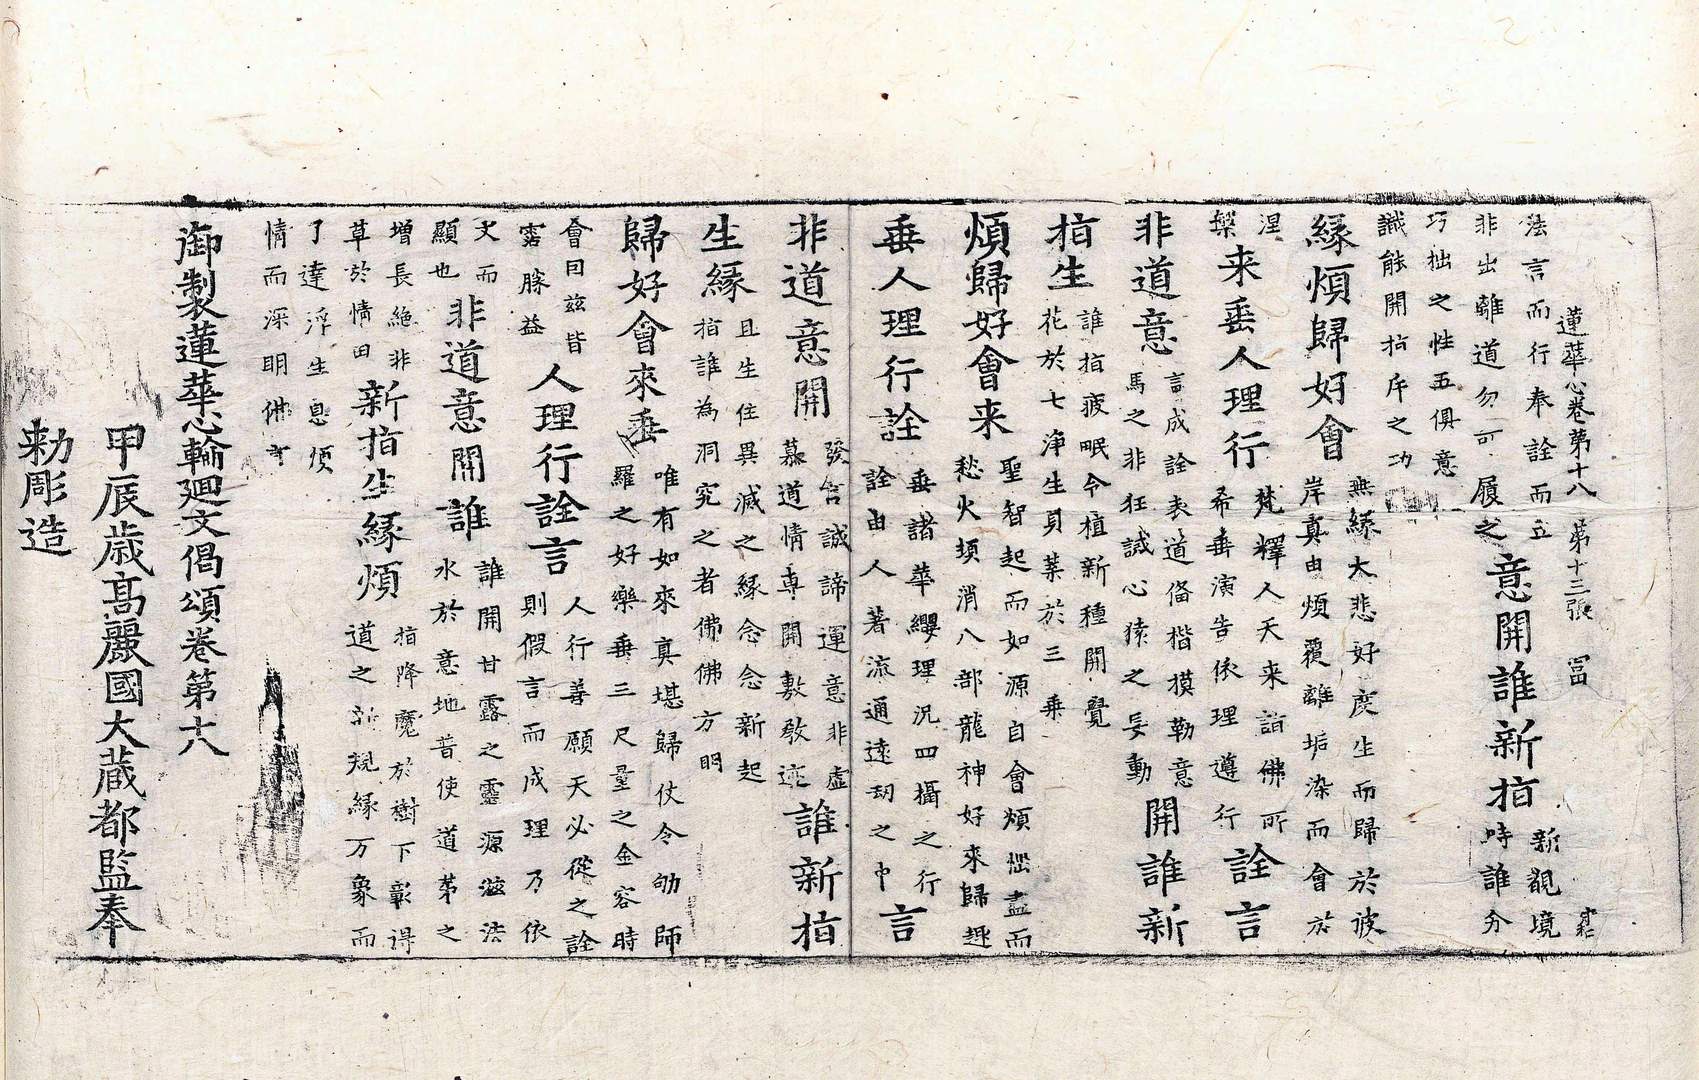 蓮華心卷第十八 第十三張 冨
法言而行奉詮而立
非出離道勿可履之
意開誰新指
新覩境
時誰分
巧拙之性五俱意
識能開指斥之功
緣煩歸好會
無緣大悲好度生而歸於彼
岸真由煩覆離垢染而會於
涅
槃
来垂人理行
梵釋人天来詣佛所
希垂演告依理遵行
詮言
非道意
言成詮表道俻楷摸勒意
馬之非狂誡心猿之妄動
開誰新
指生
誰指疲眠令植新種開覺
花於七淨生貝葉於三乗
煩歸好會来
聖智起而如源自會煩惱盡而
愁火頃消八部龍神好來歸趣
垂人理行詮
垂諸華纓理況四攝之行
詮由人著流通遠劫之中
言
非道意開
發言誠諦運意非虛
慕道情專開敷教迹
誰新指
生緣
且生住異滅之緣念念新起
指誰為洞究之者佛佛方明
歸好會來垂
唯有如來真堪歸仗令劬師
羅之好樂垂三尺量之金容時
會曰兹皆
霑勝益
人理行詮言
人行善願天必從之詮
則假言而成理乃依
文而
顯也
非道意開誰
誰開甘露之靈源滋法
水於意地普使道芽之
增長絶非
草於情田
新指生緣煩
指降魔於樹下彰得
道之新規緣万象而
了達浮生息煩
情而深明佛
御製蓮華心輪廻文偈頌卷第十八
甲辰歲髙麗國大藏都監奉
勅彫造